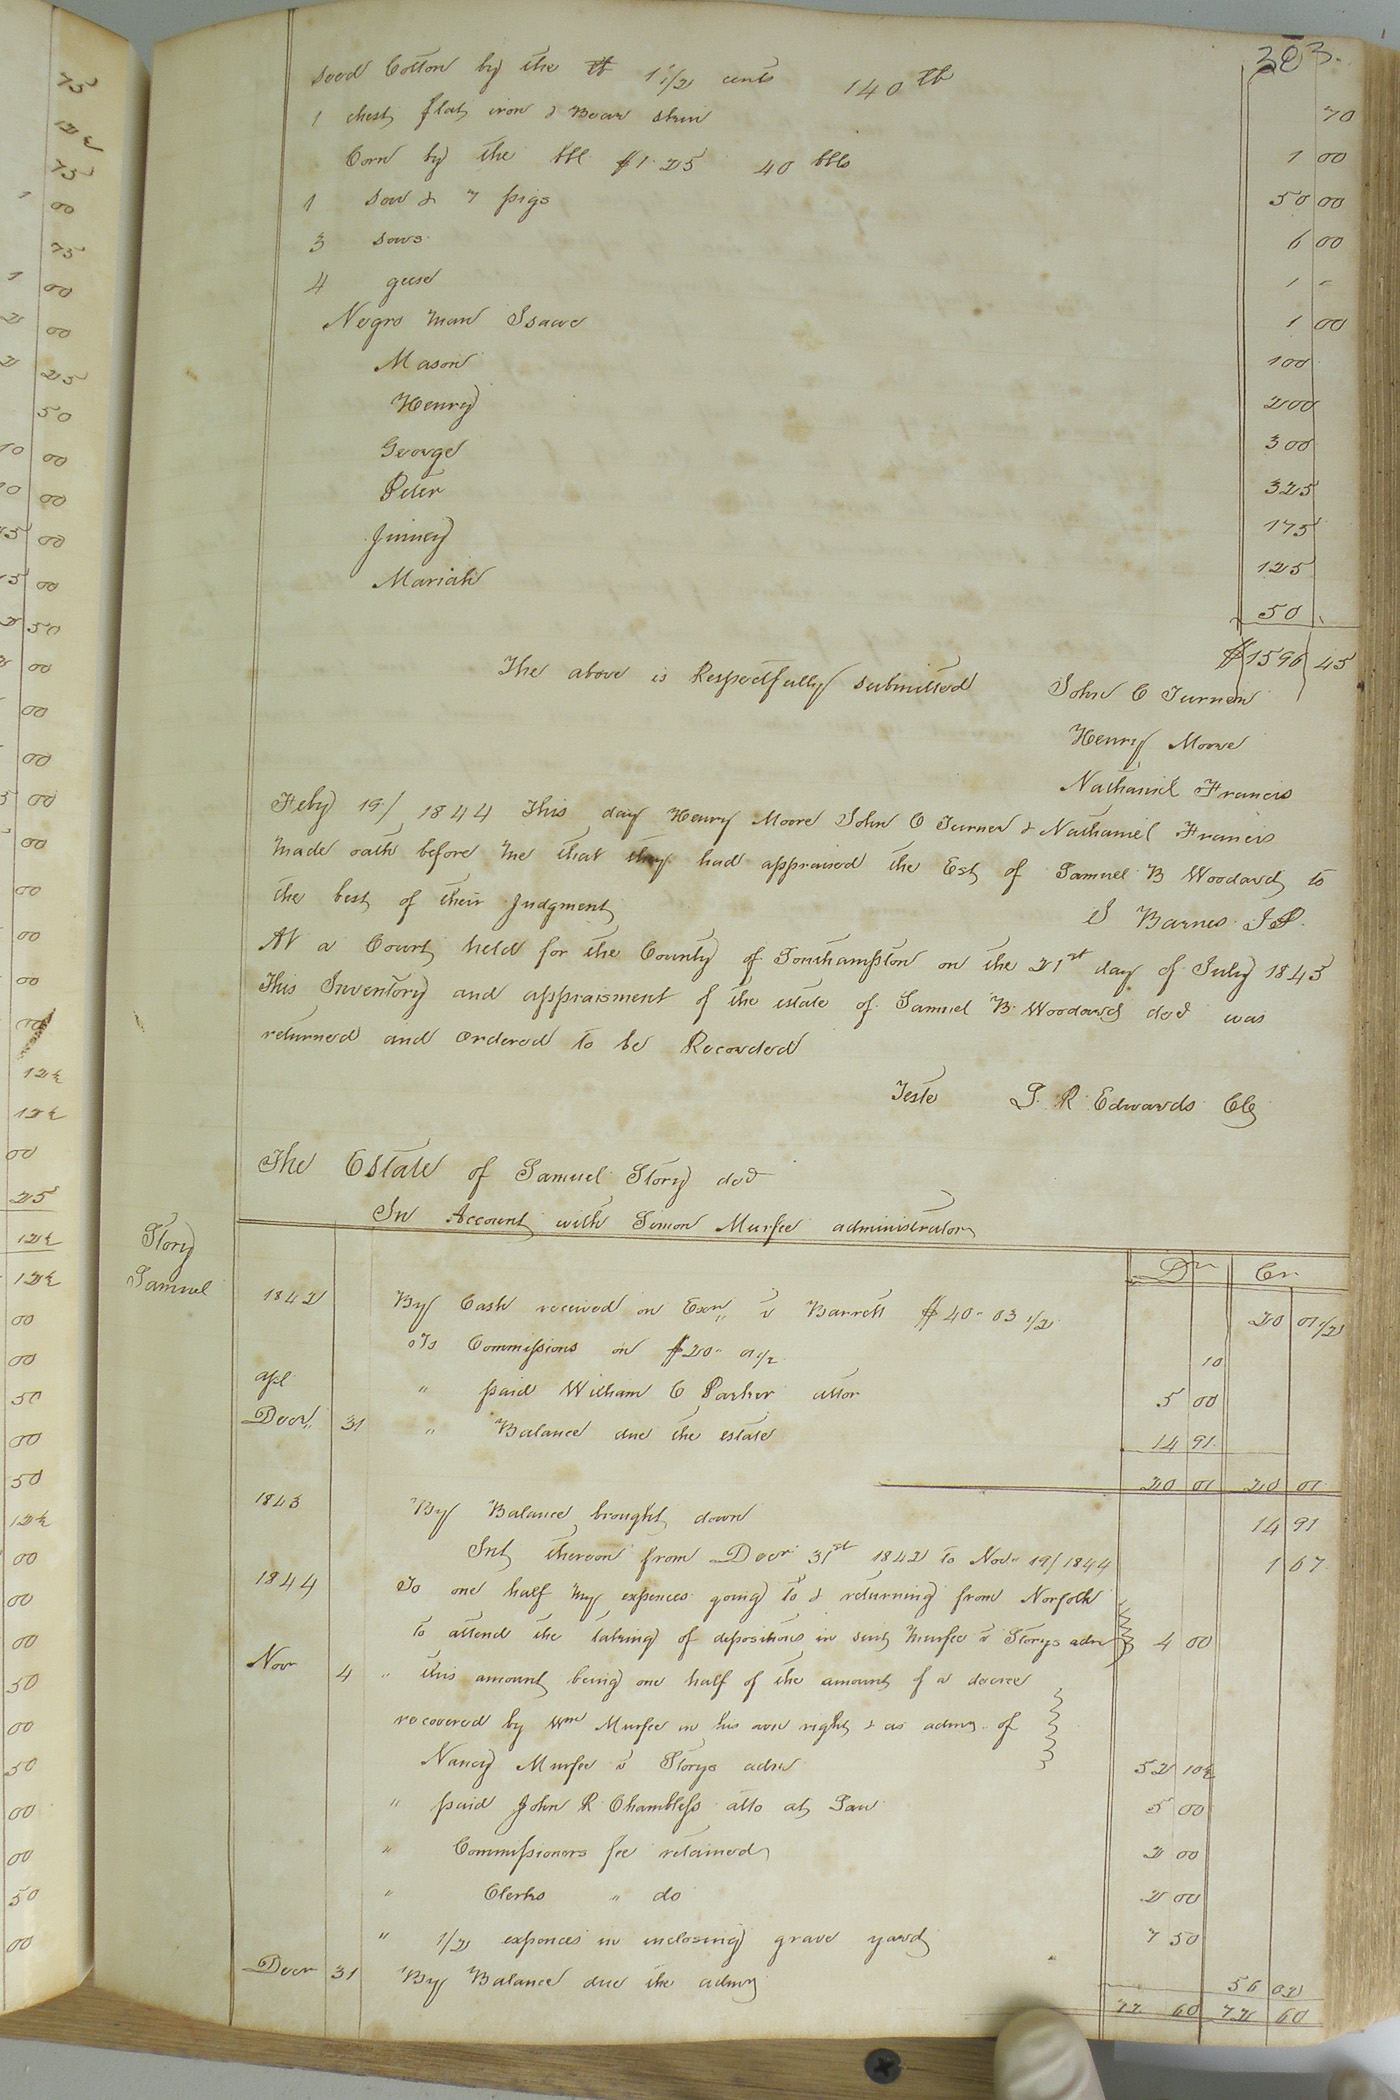 303.
Seed Cotton by the lb 1 1/2 cents 140 lb 70
1 chest flat iron & Bear skin 1 00
Corn by the bbl $1.25 40 bbls 50 00
1 Sow & 7 pigs 6 00
3 Sows 1 -
4 geese 1 00
Negro Man Isaac 100
Mason 200
Henry 300
George 325
Peter 175
Jinney 125
Mariah 50
$1596 45
The above is Respectfully submitted John C Turner
Henry Moore
Nathaniel Francis
Feby 19/ 1844 This day Henry Moore John C Turner & Nathaniel Francis
made oath before me that they had appraised the Est of Samuel B Woodard to
the best of their Judgment
Barnes J.P.
At a Court held for the County of Southampton on the 21st day of July 1845
This Inventory and appraisment of the estate of Samuel B Woodard decd was
returned and Ordered to be Recorded
Teste L. R Edwards Clk
The Estate of Samuel Story decd
In Account with Simon Murfee administrator
Story
Samuel
Dr Cr
1842 By Cash received on Exon v Barrett $40.03 1/2 20 01 1/2
To Commissions on $20.01 1/2 10
apl " paid William C Parker attor 5 00
Decr 31 " Balance due the estate 14 91
20 01 20 01
1843 By Balance brought down 14 91
Int thereon from Decr 31st 1842 to Nov 19/1844 1 67
1844 To one half my expences going to & returning from Norfolk
to attend the taking of depositions in suit Murfee v Storys adm 4 00
Nov 4 " this amount being one half of the amount of a decree
recovered by Wm Murfee in his own right & as admr of
Nancy Murfee v Storys adm 52 10
" paid John R Chambliss atto at Law 5 00
" Commissioners fee retained 2 00
" Clerks " do 2 00
" 1/2 expences in inclosing grave yard 7 50
Decr 31 By Balance due the admr 56 02
72 60 72 60
75
75
1 00
75
1 00
2 00
2 25
50
10 00
00
00
00
50
00
00
00
00
00
00
00
00
00
25
00
00
50
00
50
00
00
00
50
00
50
00
00
50
00